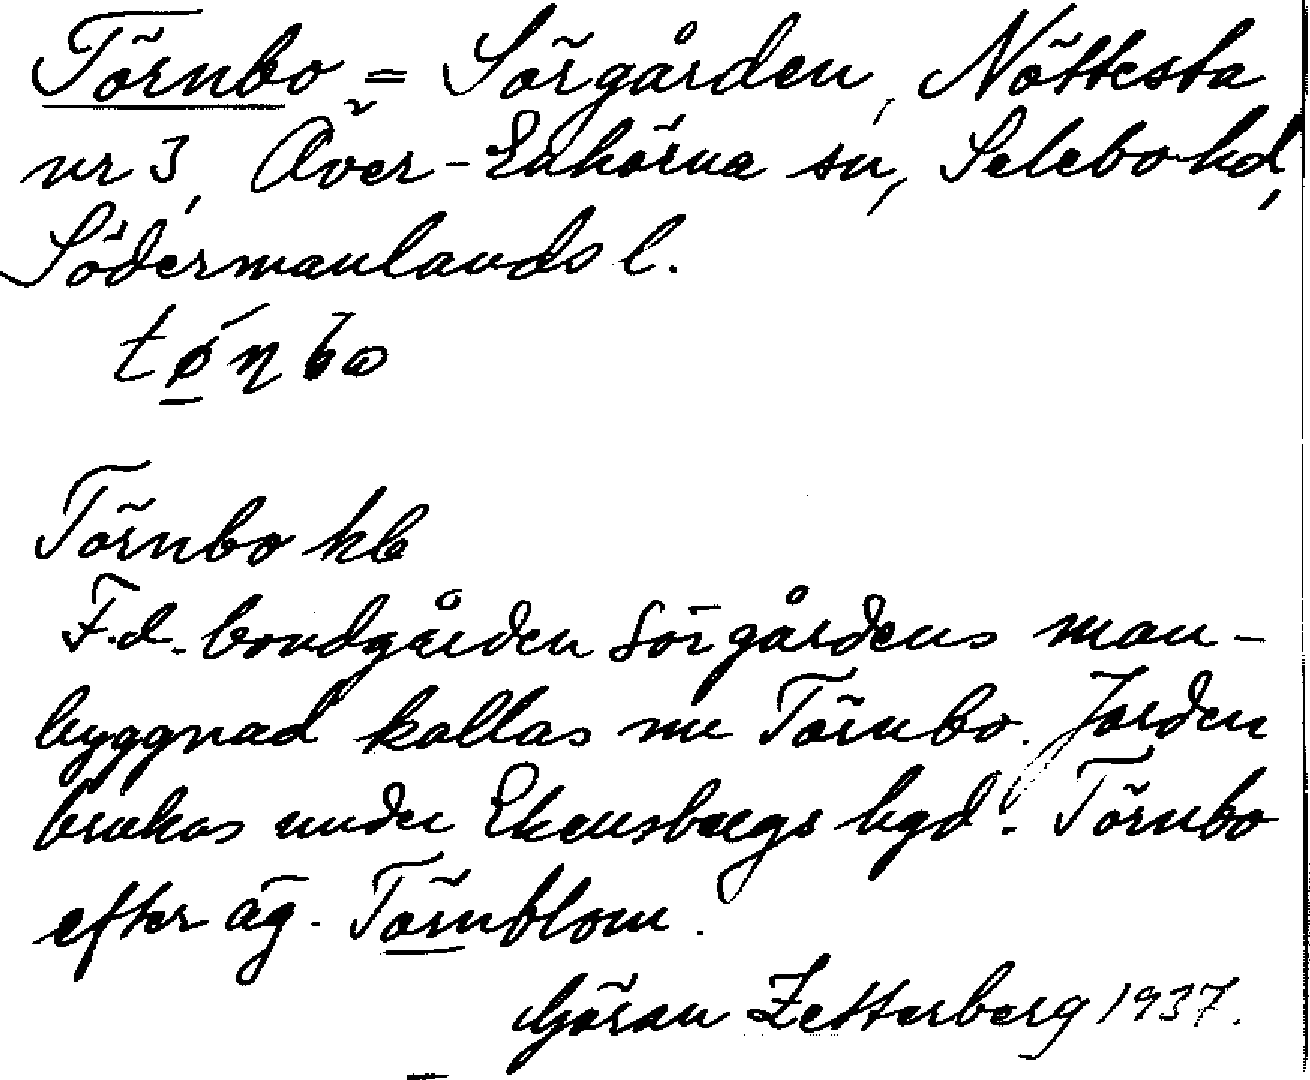 Törnbo = Sörgården, Nöttesta
nr 3, Över-Enhörna sn, Selebo hd,
Södermanlands l.
tø̱ɳbo
Törnbo kb
F.d. bondgården Sörgårdens man-
byggnad kallas nu Törnbo. Jorden
brukas under Ekensbergs hgd. Törnbo
efter äg. Törnblom.
Göran Zetterberg 1937.